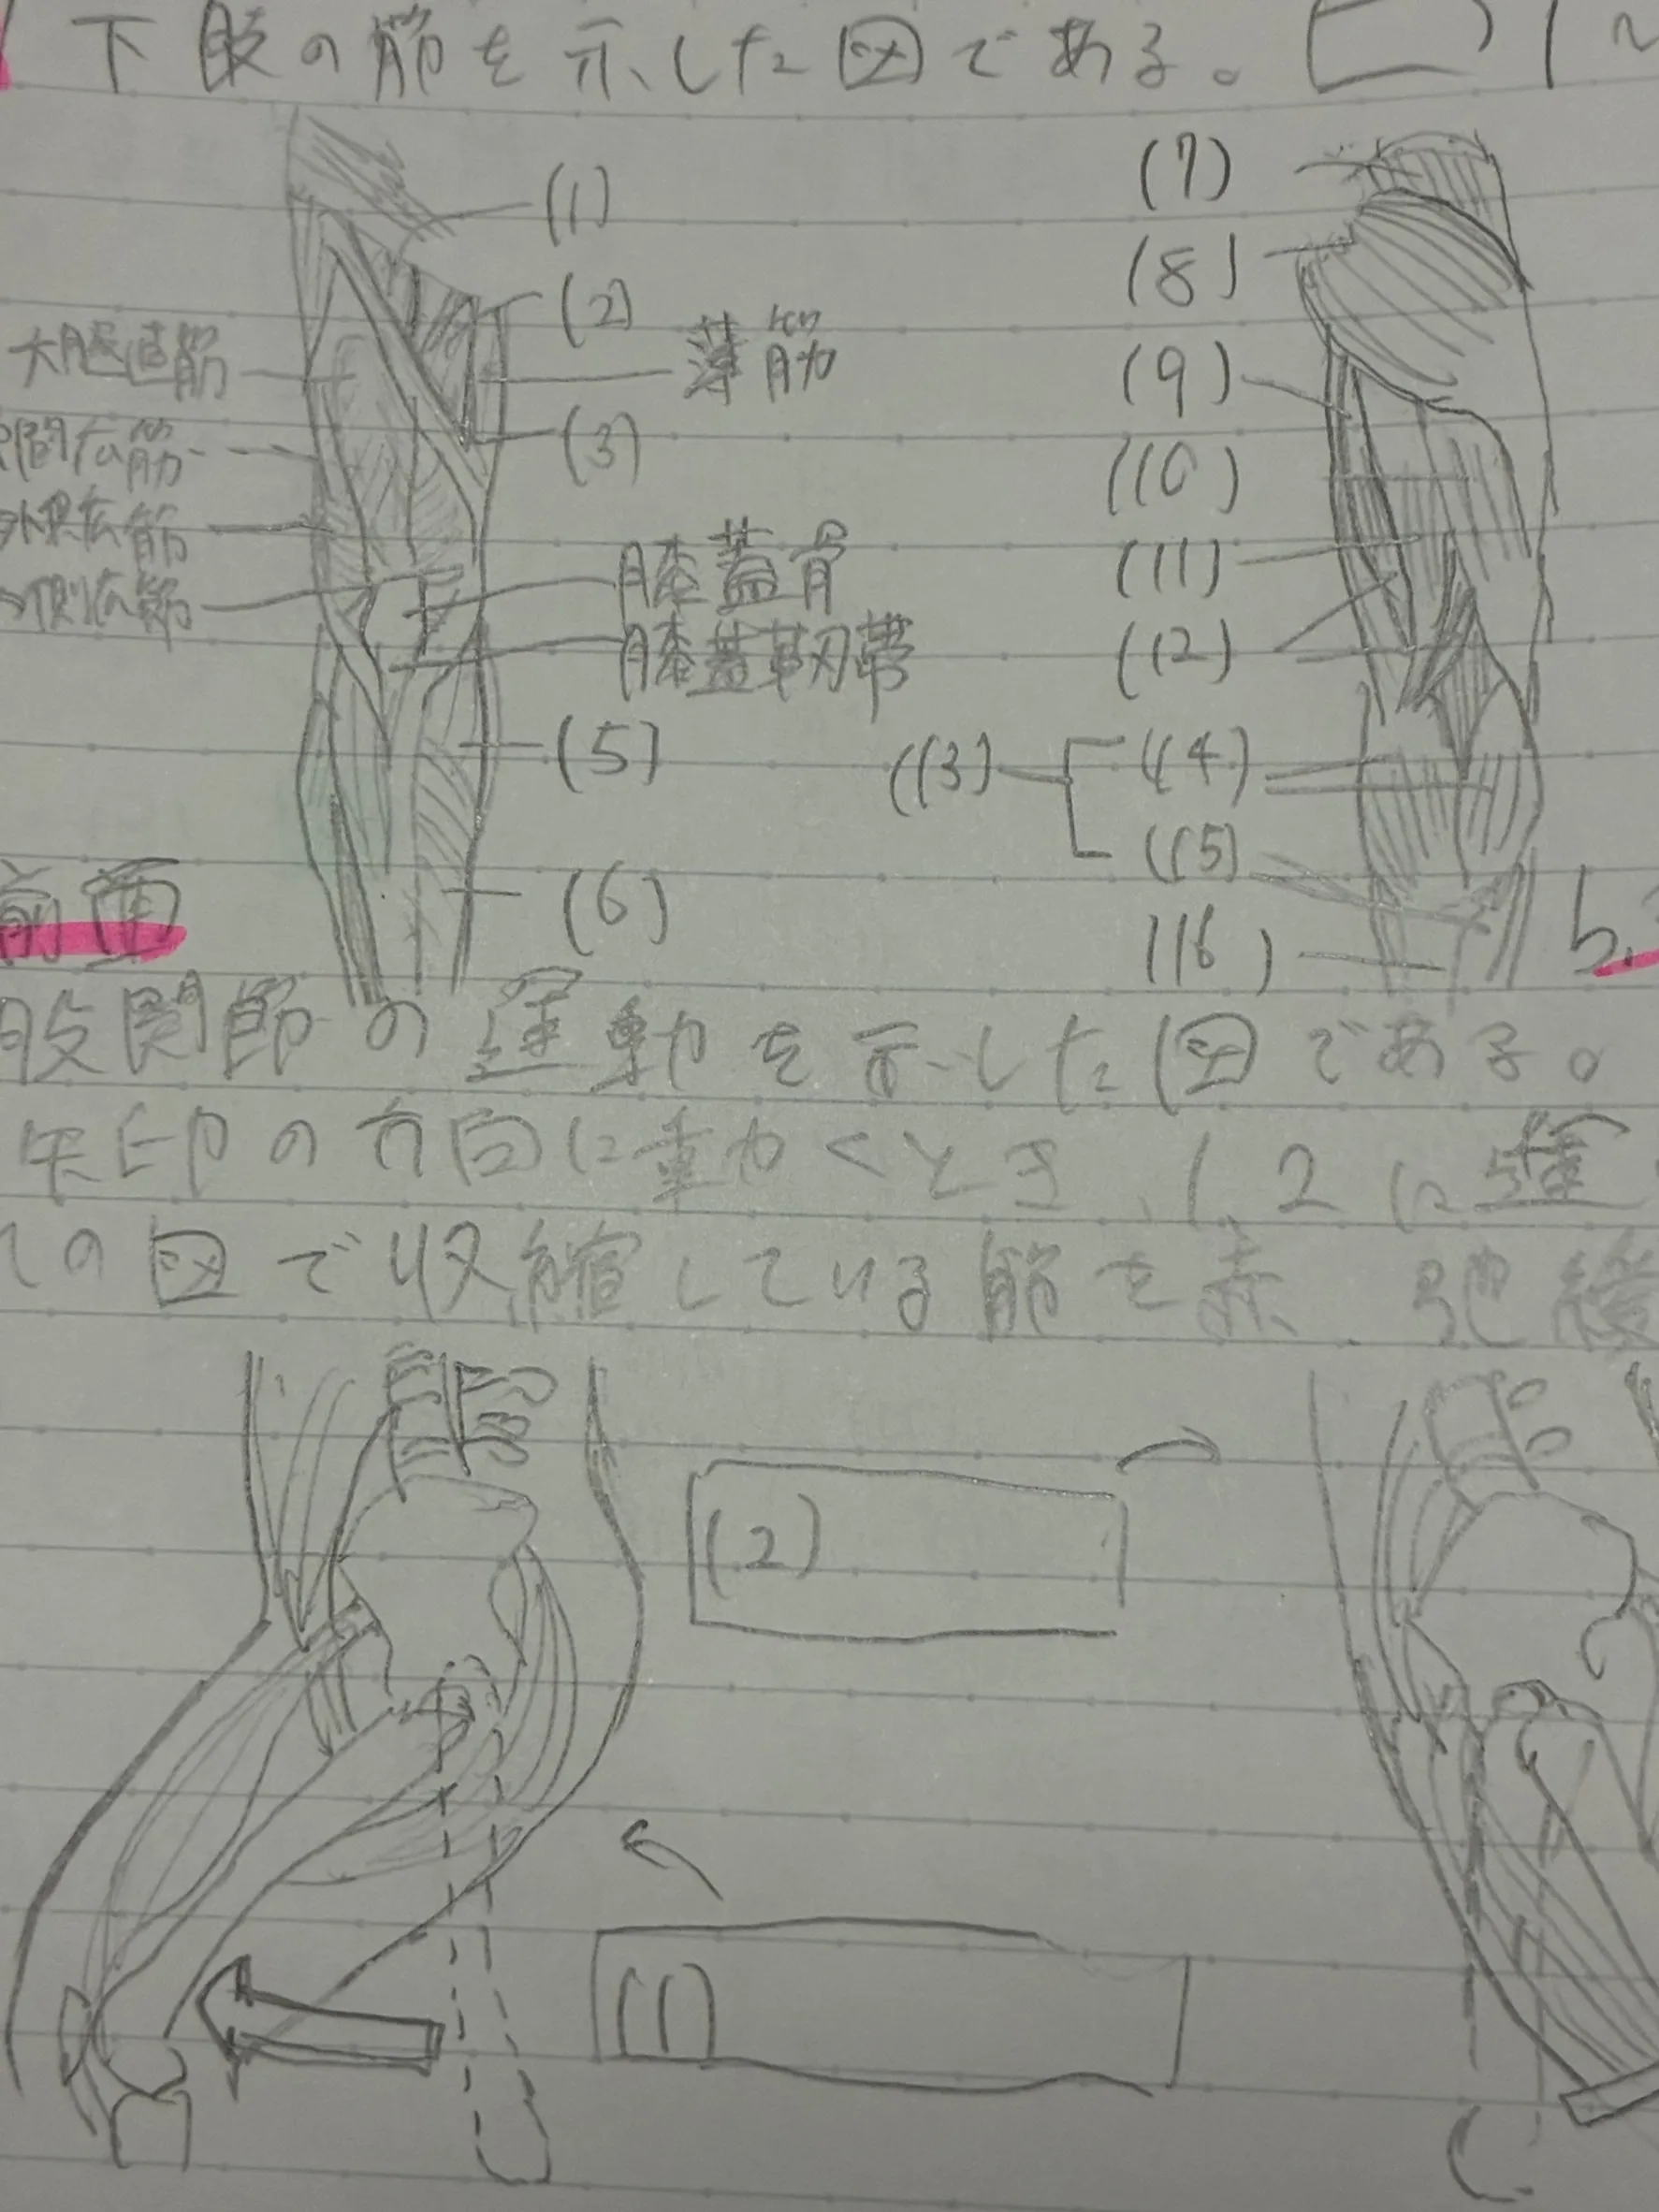 下肢の筋を示した図である。
(1)
(2)
大腿直筋
薄筋
間広筋
(3)
広筋
側広筋
膝蓋骨
膝蓋靭帯
(5)
(6)
前面
(7)
(8)
(9)
(10)
(11)
(12)
(13)
(14)
(15)
(16)
b.
股関節の運動を示した図である。
矢印の方向に動くとき、1, 2に
の図で収縮している筋を赤、弛緩
(2)
(1)